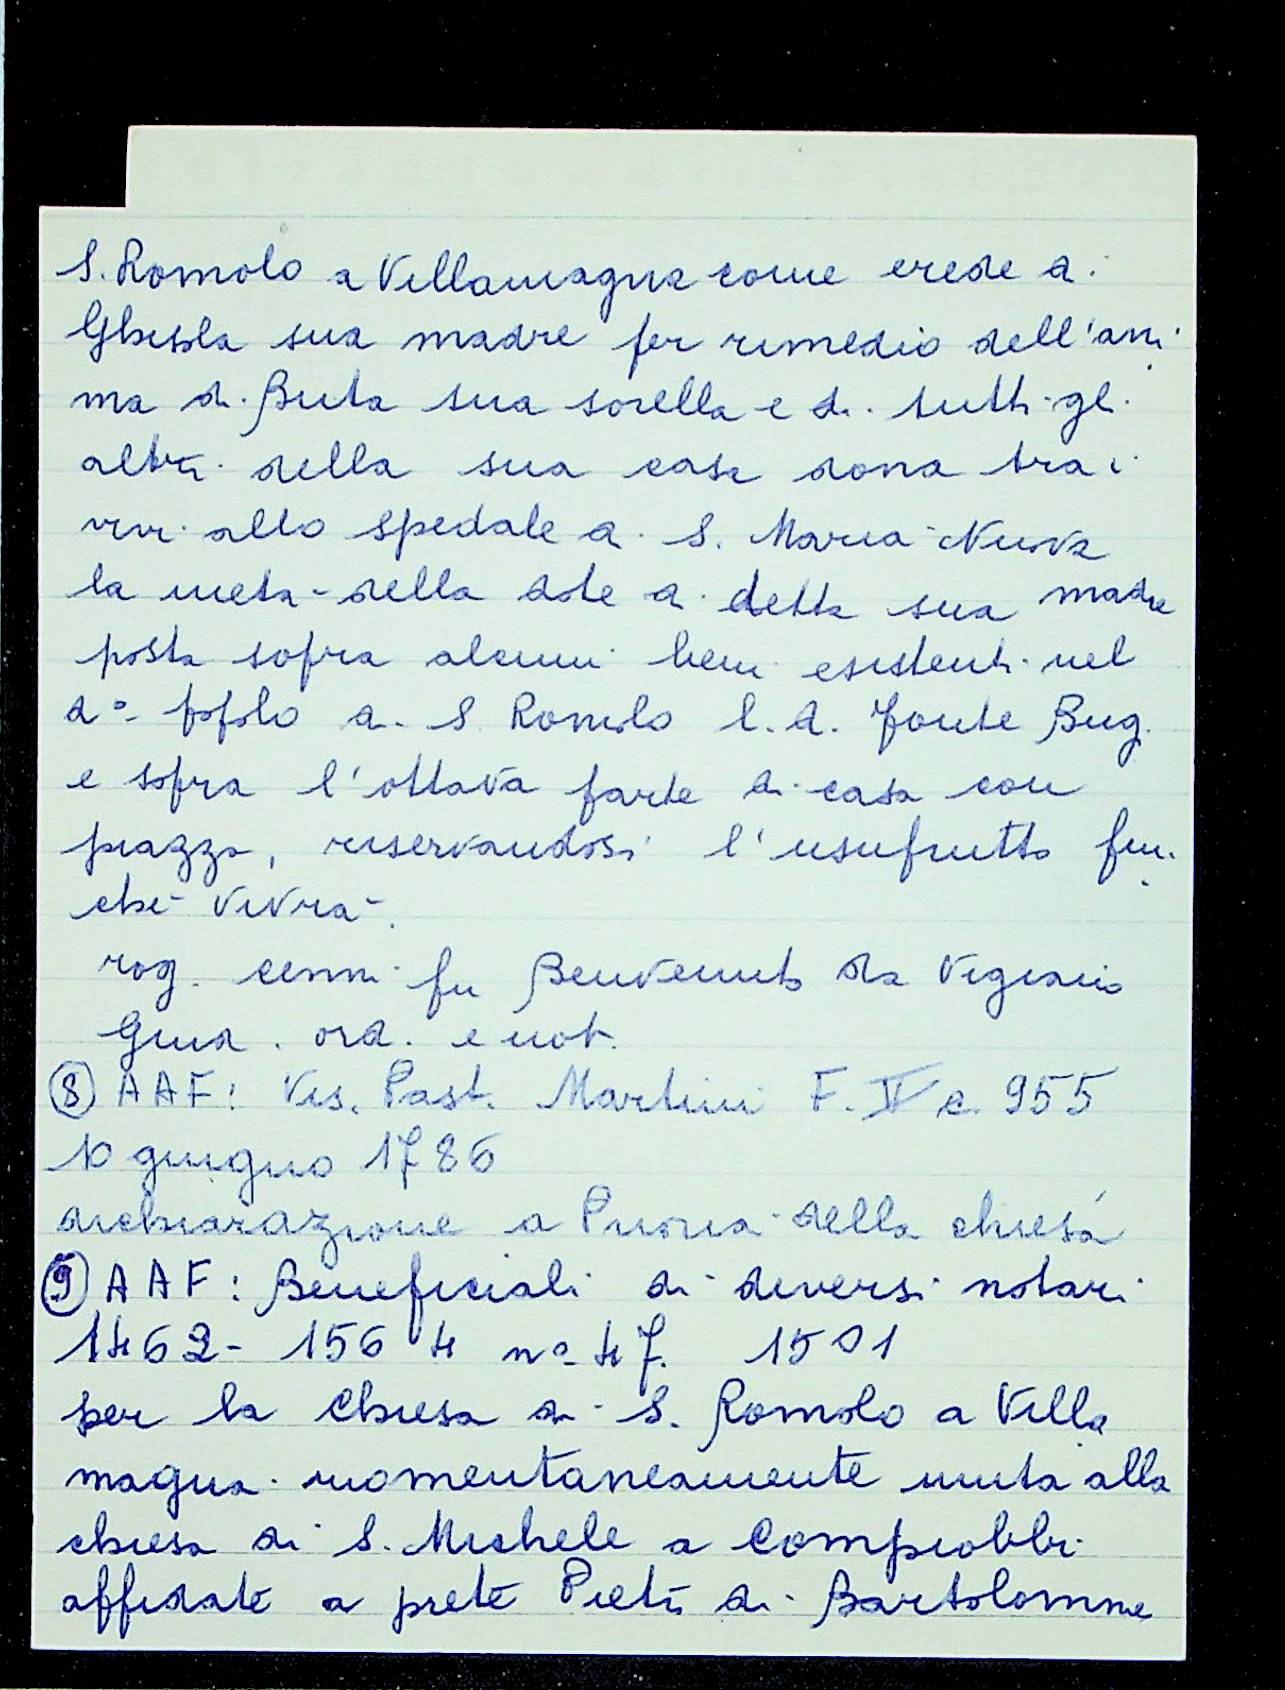 S. Romolo a Villamagna come erede di
Ghisola sua madre per rimedio dell'ani
ma di Buta sua sorella e di tutti gli
altri della sua casa dona tra i
vivi allo spedale di S. Maria Nuova
la metà della dote di detta sua madre
posta sopra alcuni beni esistenti nel
do popolo di S Romolo l.d. Fonte Bug.
e sopra l'ottava parte di casa con
piazza, riservandosi l'usufrutto fin.
chè vivrà.
rog. Cenni fu Benvenuto da Vigiano
Giud. ord. e not.
(8) AAF: Vis. Past. Martini F. IV c. 955
10 giugno 1786
dichiarazione a Prioria della chiesa
(9) AAF: Beneficiali di diversi notari
1462-1564 no 47. 1501
per la chiesa di S. Romolo a Villa
magna momentaneamente unita alla
chiesa di S. Michele a Compiobbi
affidate a prete Pietro di Bartolomme